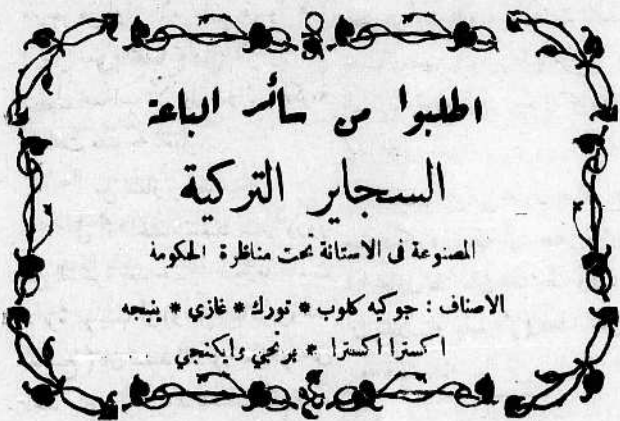 اطلبوا من سائر الباعة
السجاير التركية
المصنوعة فى الاستانة تحت مناظرة الحكومة
الاصناف : جوكيه كلوب * تورك * غازي * ينيجه
اكسترا اكسترا * برنجي وايكنجي